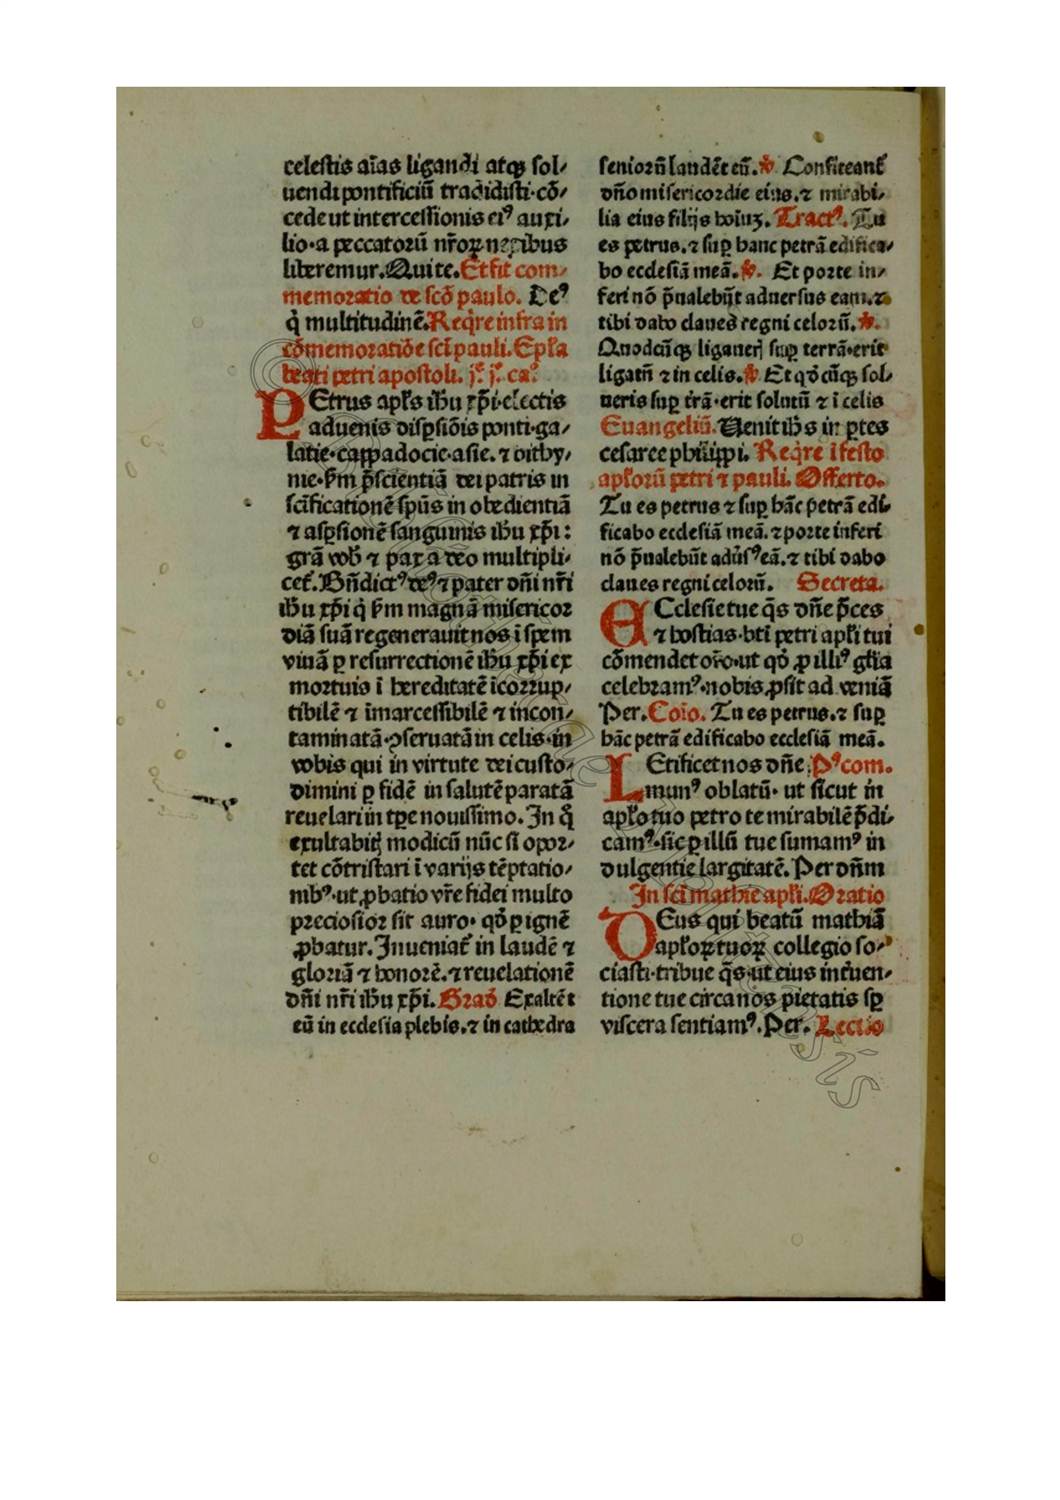 celestis aīas ligandi atqꝫ sol⸗
uendi pontificiū tradidisti·cō⸗
cede ut intercessionis ei⁹ auxi⸗
lio·a peccatorū nr̄oꝝ nexibus
liberemur.Qui te.Et fit com⸗
memoratio de sc̄o paulo. De⁹
q̇ multitudinē.Reqͥre infra in
cōmemoratiōe sc̄i pauli.Epl̄a
beati petri apostoli. j°. j°. ca°.
PEtrus apl̄s ih̄u xp̄i·electis
aduenis disꝑsiōis ponti·ga⸗
latie·cappadocie·asie.⁊ bithy⸗
nie·ẜm p̄scientiā dei patris in
sc̄ificationē sp̄us in obedientiā
⁊ asꝑsionē sanguinis ih̄u xp̄i:
gr̄a vob̄ ⁊ pax a deo multipli⸗
cet᷑.Bn̄dict⁹ de⁹ ⁊ pater dn̄i nr̄i
ih̄u xp̄i q̇ ẜm magnā misericor
diā suā regenerauit nos ī spem
viuā ꝑ resurrectionē ih̄u xp̄i ex
mortuis ī hereditatē īcorrup⸗
tibilē ⁊ īmarcessibilē ⁊ incon⸗
taminatā·ꝯseruatā in celis·in
vobis qui in virtute dei custo⸗
dimini ꝑ fidē in salutē paratā
reuelari in tꝑe nouissimo.In q̄
exultabitꝭ modicū nūc si opor⸗
tet cōtristari ī varijs tēptatio⸗
nib⁹·ut ꝓbatio vr̄e fidei multo
preciosior sit auro· qd̄ ꝑ ignē
ꝓbatur.Inueniat᷑ in laudē ⁊
gloriā ⁊ honorē.⁊ reuelationē
dn̄i nr̄i ih̄u xp̄i.Grad̄ Exaltēt
eū in ecclesia plebis.⁊ in cathedra
seniorū laudēt eū.℣. Confiteant᷑
dn̄o misericordie eius.⁊ mirabi⸗
lia eius filijs hoīuꝫ.Tract⁹. Tu
es petrus.⁊ suꝑ hanc petrā edifica⸗
bo ecclesiā meā.℣. Et porte in⸗
feri nō p̄ualebūt aduersus eam.⁊
tibi dabo claues regni celorū.℣.
Quodcūqꝫ ligauerꝭ suꝑ terrā·erit
ligatū ⁊ in celis.℣. Et qd̄cūqꝫ sol⸗
ueris suꝑ t̄rā·erit solutū ⁊ ī celis
Euangeliū.Uenit ih̄s in ꝑtes
cesaree philippi. Reqͥre ī festo
apl̄orū petri ⁊ pauli. Offerto.
Tu es petrus ⁊ suꝑ hāc petrā edi⸗
ficabo ecclesiā meā.⁊ porte inferi
nō p̄ualebūt adūs⁹ eā.⁊ tibi dabo
claues regni celorū. Secreta.
ECclesie tue q̄s dn̄e p̄ces
⁊ hostias·bt̄i petri apl̄i tui
cōmendet or̄o·ut qd̄ ꝓ illi⁹ gl̄ia
celebram⁹·nobis ꝓsit ad veniā
Per.Coīo. Tu es petrus.⁊ suꝑ
hāc petrā edificabo ecclesiā meā.
LEtificet nos dn̄e P⁹com.
mun⁹ oblatū· ut sicut in
apl̄o tuo petro te mirabilē p̄di⸗
cam⁹·sic ꝑ illū tue sumam⁹ in
dulgentie largitatē. Per dn̄m
In sc̄i mathie apl̄i.Oratio
DEus qui beatū mathiā
apl̄oꝝ tuoꝝ collegio so⸗
ciasti·tribue q̄s·ut eius int̄uen⸗
tione tue circa nos pietatis sꝑ
viscera sentiam⁹.Per. Lectio